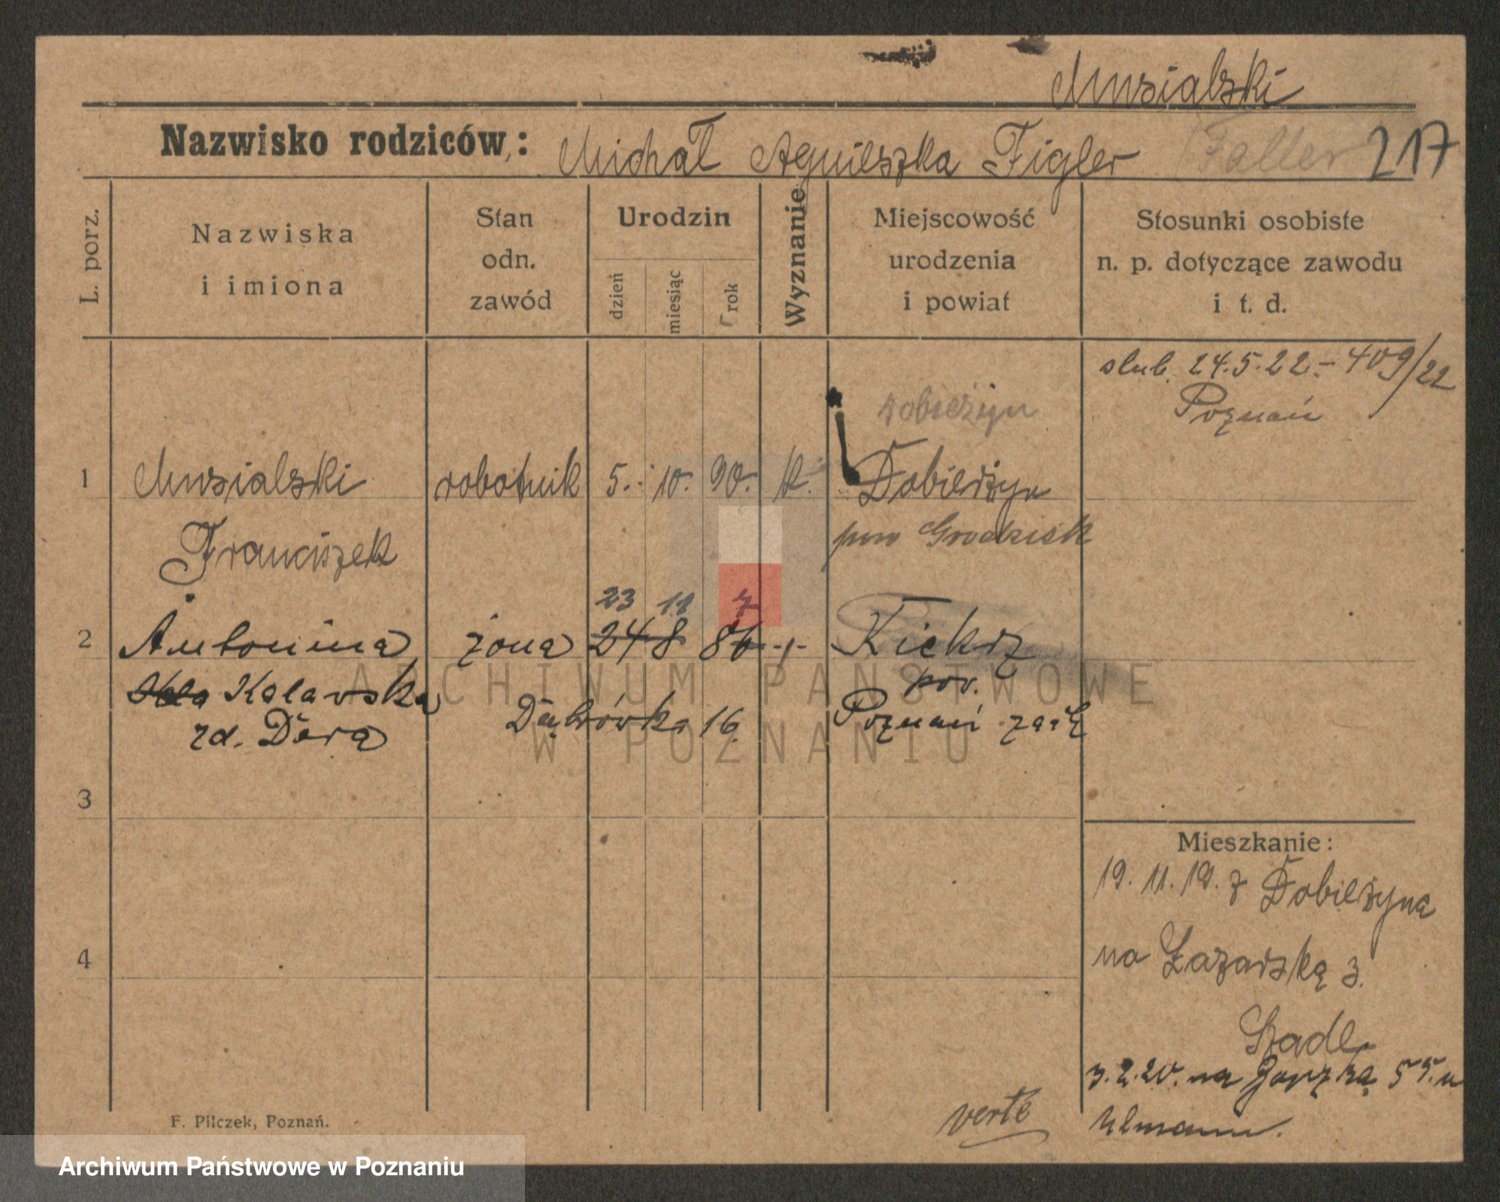 Musialski
Nazwisko rodziców: Michał Agnieszka Figler Faller 217
L. porz.
Nazwiska
i imiona
Stan
odn.
zawód
Urodzin
dzień
miesiąc
rok
Wyznanie
Miejscowość
urodzenia
i powiat
Stosunki osobiste
n. p. dotyczące zawodu
i t. d.
slub. 24.5.22.- 409/22
Poznań
1 Musialski robotnik 5. 10. 90. K. Dobieżyn
Franciszek pow Grodzisk
23 11 7
2 Antonina żona 24 8 86 -,- Kiekrz
Kolavska pov.
zd. Dera Dąbrówka 16. Poznań zach
3
4
Mieszkanie:
19.11.19. z Dobieżyna
na Łazarską 3.
3.2.20. na 55. u
Ulmann.
verte
F. Pilczek, Poznań.
ARCHIWUM PAŃSTWOWE
W POZNANIU
Archiwum Państwowe w Poznaniu